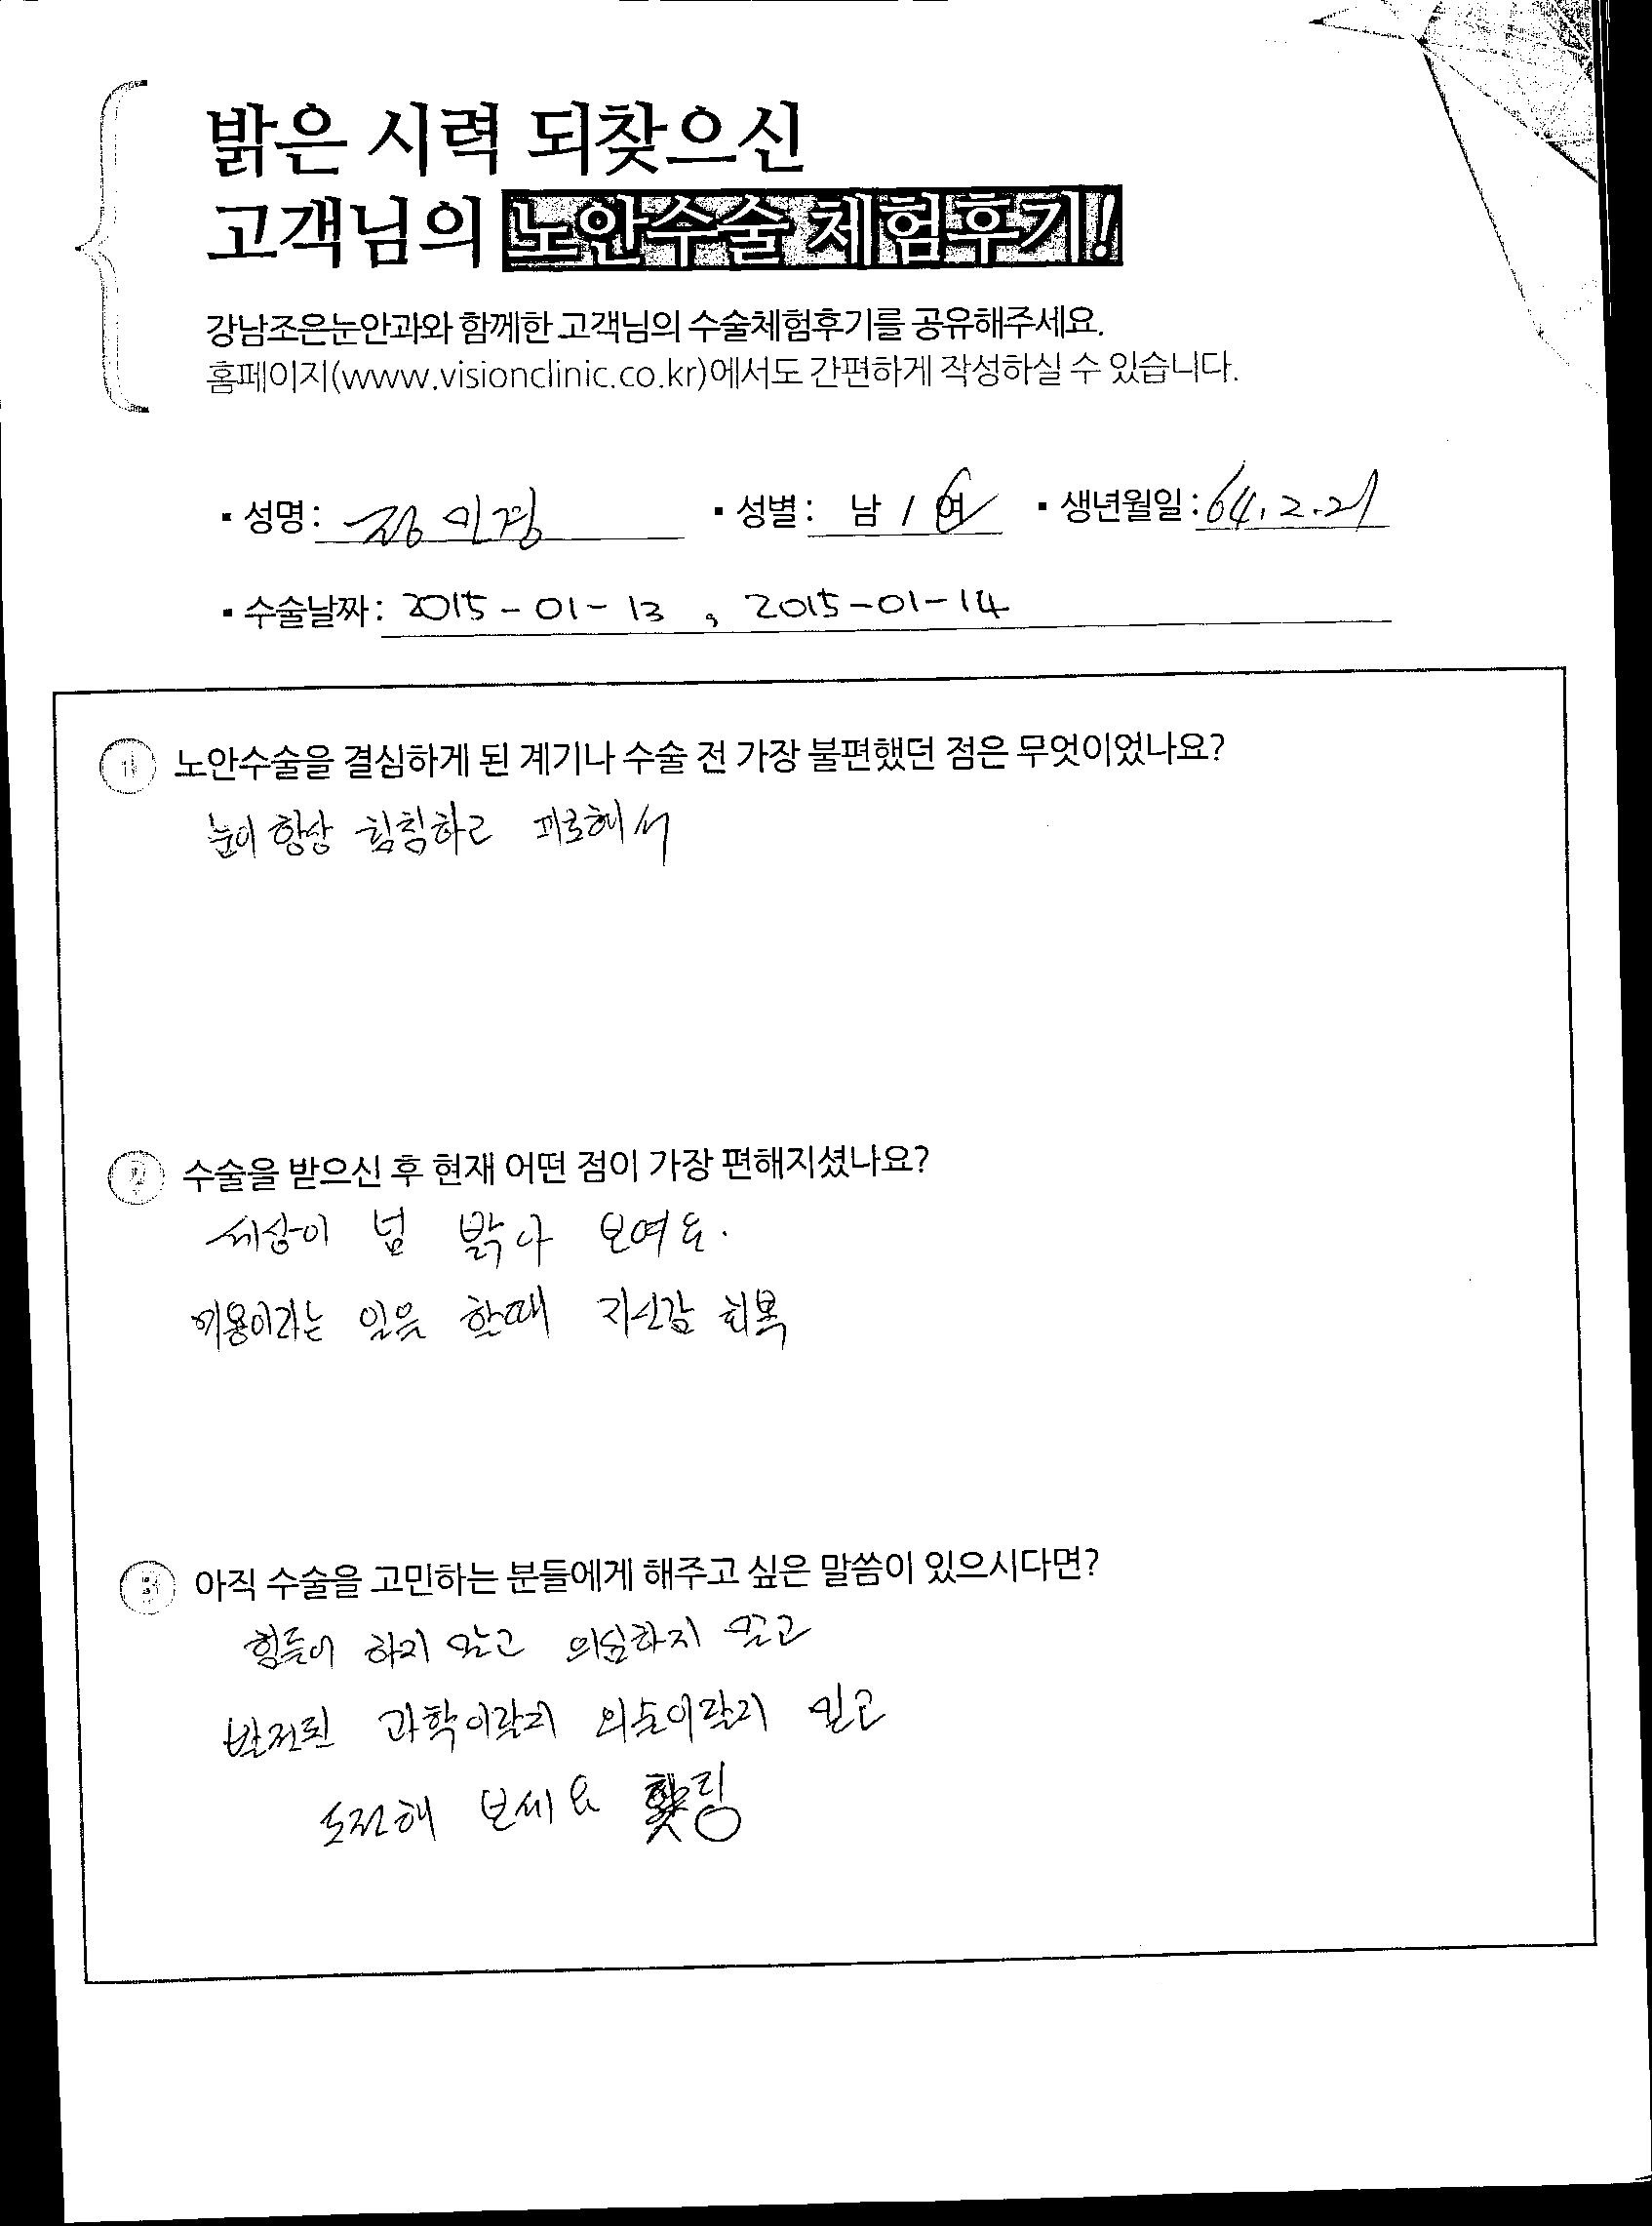 밝은 시력 되찾으신
고객님의 노안수술 체험후기!
강남조은눈안과와 함께한 고객님의 수술체험후기를 공유해주세요.
홈페이지(www.visionclinic.co.kr)에서도 간편하게 작성하실 수 있습니다.
▪ 성명: 장민경 ▪ 성별: 남 / 여 ▪ 생년월일: 64.2.21
▪ 수술날짜: 2015-01-13, 2015-01-14
1 노안수술을 결심하게 된 계기나 수술 전 가장 불편했던 점은 무엇이었나요?
눈이 항상 침침하고 피로해서
2 수술을 받으신 후 현재 어떤 점이 가장 편해지셨나요?
세상이 넘 밝아 보여요.
미용이라는 일을 할때 자신감 회복
3 아직 수술을 고민하는 분들에게 해주고 싶은 말씀이 있으시다면?
힘들어 하지 않고 의심하지 말고
발전된 과학이랄지 의술이랄지 믿고
도전해 보세요 홧팅